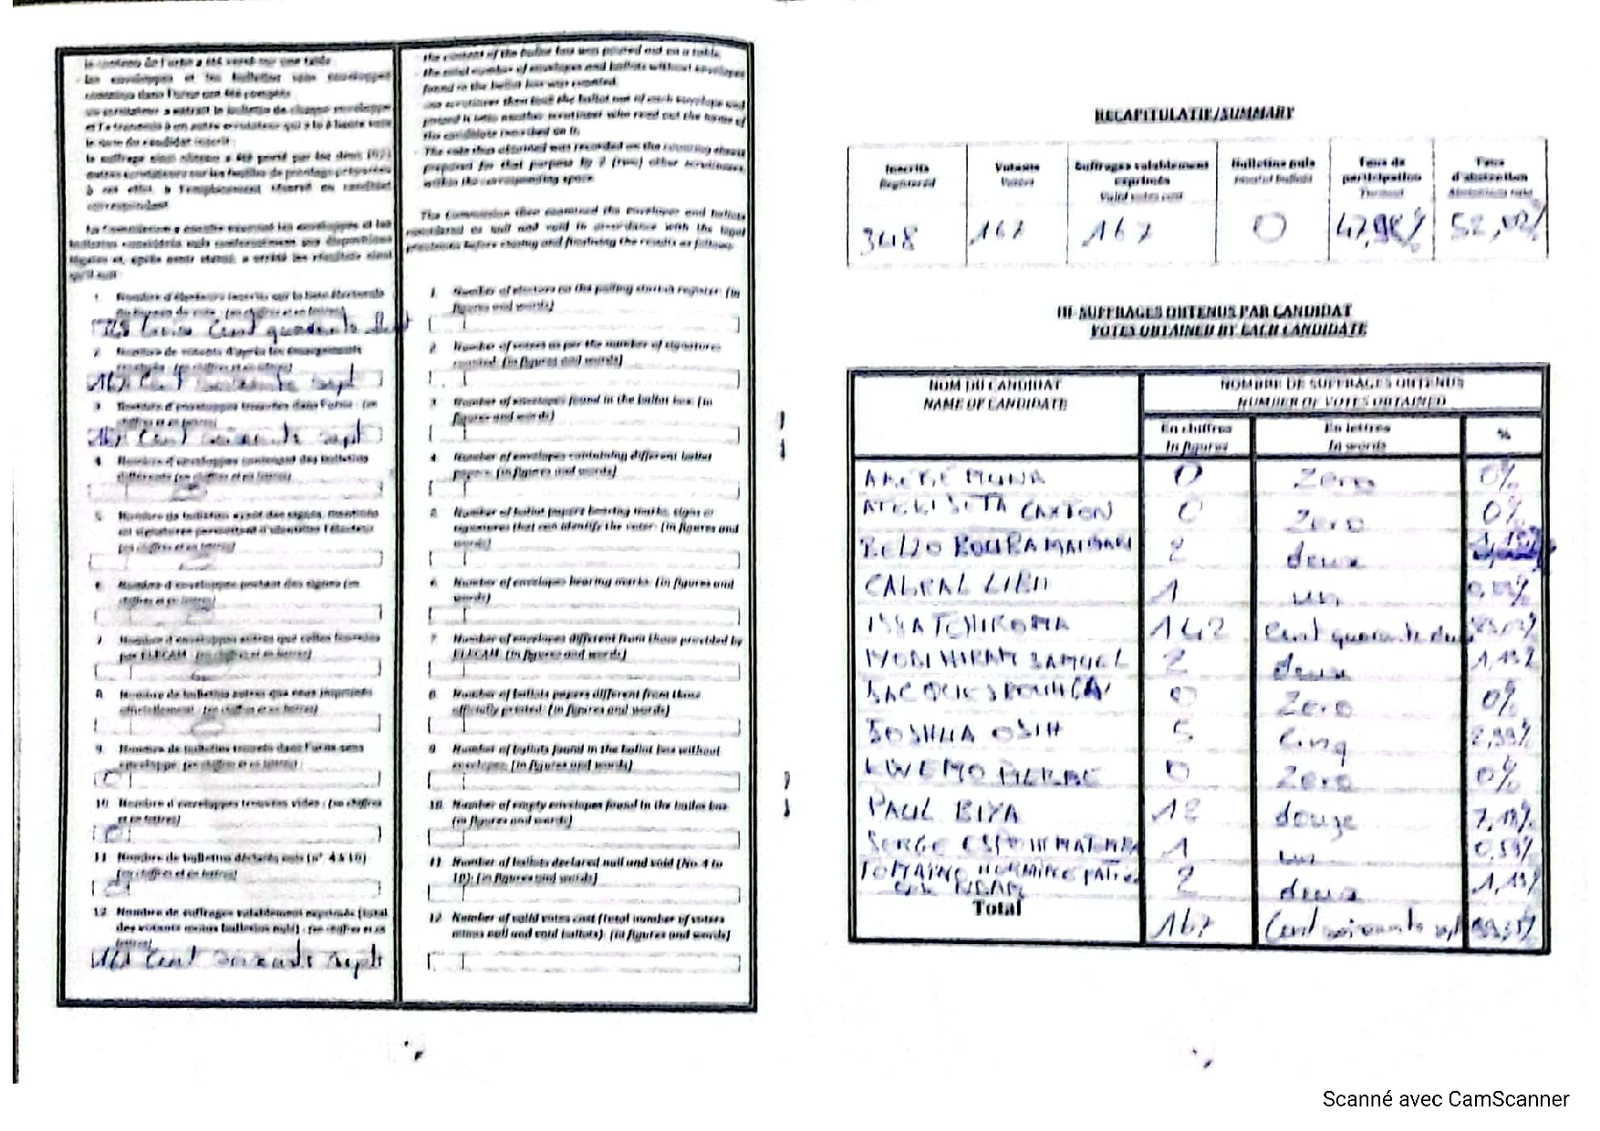 le contenu de l'urne a été versé sur une table
- les enveloppes et les bulletins sans enveloppes
contenus dans l'urne ont été comptés
un scrutateur a extrait le bulletin de chaque enveloppe
et l'a transmis à un autre scrutateur qui a lu à haute voix
le nom du candidat inscrit
le suffrage ainsi obtenu a été porté par les deux (02)
autres scrutateurs sur les feuilles de pointage préparées
à cet effet, à l'emplacement réservé au candidat
correspondant
La Commission a ensuite examiné les enveloppes et les
bulletins considérés nuls conformément aux dispositions
légales et, après avoir statué, a arrêté les résultats ainsi
qu'il suit
1. Nombre d'électeurs inscrits sur la liste électorale
du bureau de vote : (en chiffres et en lettres)
trois cent quarante huit
2. Nombre de votants d'après les émargements
(en chiffres et en lettres)
167 Cent soixante sept
3. Nombre d'enveloppes trouvées dans l'urne : (en
chiffres et en lettres)
167 Cent soixante sept
4. Nombre d'enveloppes contenant des bulletins
différents (en chiffres et en lettres)
5. Nombre de bulletins ayant des signes, mentions
ou signatures permettant d'identifier l'électeur
(en chiffres et en lettres)
6. Nombre d'enveloppes portant des signes (en
chiffres et en lettres)
7. Nombre d'enveloppes autres que celles fournies
par ELECAM : (en chiffres et en lettres)
8. Nombre de bulletins autres que ceux imprimés
officiellement : (en chiffres et en lettres)
9. Nombre de bulletins trouvés dans l'urne sans
enveloppe. (en chiffres et en lettres) :
0
10. Nombre d'enveloppes trouvées vides : (en chiffres
et en lettres)
0
11. Nombre de bulletins déclarés nuls (n° 4 à 10)
(en chiffres et en lettres)
0
12. Nombre de suffrages valablement exprimés (total
des votants moins bulletins nuls) : (en chiffres et en
lettres)
167 Cent soixante sept
the content of the ballot box was poured out on a table.
- the total number of envelopes and ballots without envelopes
found in the ballot box was counted.
one scrutineer then took the ballot out of each envelope and
passed it unto another scrutineer who read out the name of
the candidate inscribed on it;
- The vote thus obtained was recorded on the counting sheets
prepared for that purpose by 2 (two) other scrutineers,
within the corresponding space.
The Commission then examined the envelopes and ballots
considered as null and void in accordance with the legal
provisions before closing and finalising the results as follows.
1. Number of electors on the polling station register: (in
figures and words)
2. Number of voters as per the number of signatures
counted: (in figures and words)
3. Number of envelopes found in the ballot box: (in
figures and words)
4. Number of envelopes containing different ballot
papers: (in figures and words)
5. Number of ballot papers bearing marks, signs or
signatures that can identify the voter: (in figures and
words)
6. Number of envelopes bearing marks: (in figures and
words)
7. Number of envelopes different from those provided by
ELECAM: (in figures and words)
8. Number of ballots papers different from those
officially printed: (in figures and words)
9. Number of ballots found in the ballot box without
envelopes: (in figures and words)
10. Number of empty envelopes found in the ballot box:
(in figures and words)
11. Number of ballots declared null and void (No 4 to
10): (in figures and words)
12. Number of valid votes cast (total number of voters
minus null and void ballots): (in figures and words)
RECAPITULATIF/SUMMARY
Inscrits Votants Suffrages valablement exprimés Bulletins nuls Taux de participation Taux d'abstention
Registered Voters Valid votes cast Invalid ballots Turnout Abstention rate
348 167 167 0 47,98% 52,02%
III- SUFFRAGES OBTENUS PAR CANDIDAT
VOTES OBTAINED BY EACH CANDIDATE
NOM DU CANDIDAT NOMBRE DE SUFFRAGES OBTENUS
NAME OF CANDIDATE NUMBER OF VOTES OBTAINED
En chiffres En lettres %
In figures In words
AKERE MUNA 0 Zero 0%
ATEKI SETA CAXTON 0 Zero 0%
BELLO BOUBA MAIGARI 2 deux 1,19%
CABRAL LIBII 1 un 0,59%
ISSA TCHIROMA 142 Cent quarante deux
IYODI HIRAM SAMUEL 2 deux 1,19%
JACQUES BOUHGA 0 Zero 0%
JOSHUA OSIH 5 Cinq 2,99%
KWEMO PIERRE 0 Zero 0%
PAUL BIYA 12 douze 7,19%
SERGE ESPOIR MATOMBA 1 un 0,59%
TOMAINO HERMINE PATRICIA
NDAM 2 deux 1,19%
Total 167 Cent soixante sept
Scanné avec CamScanner